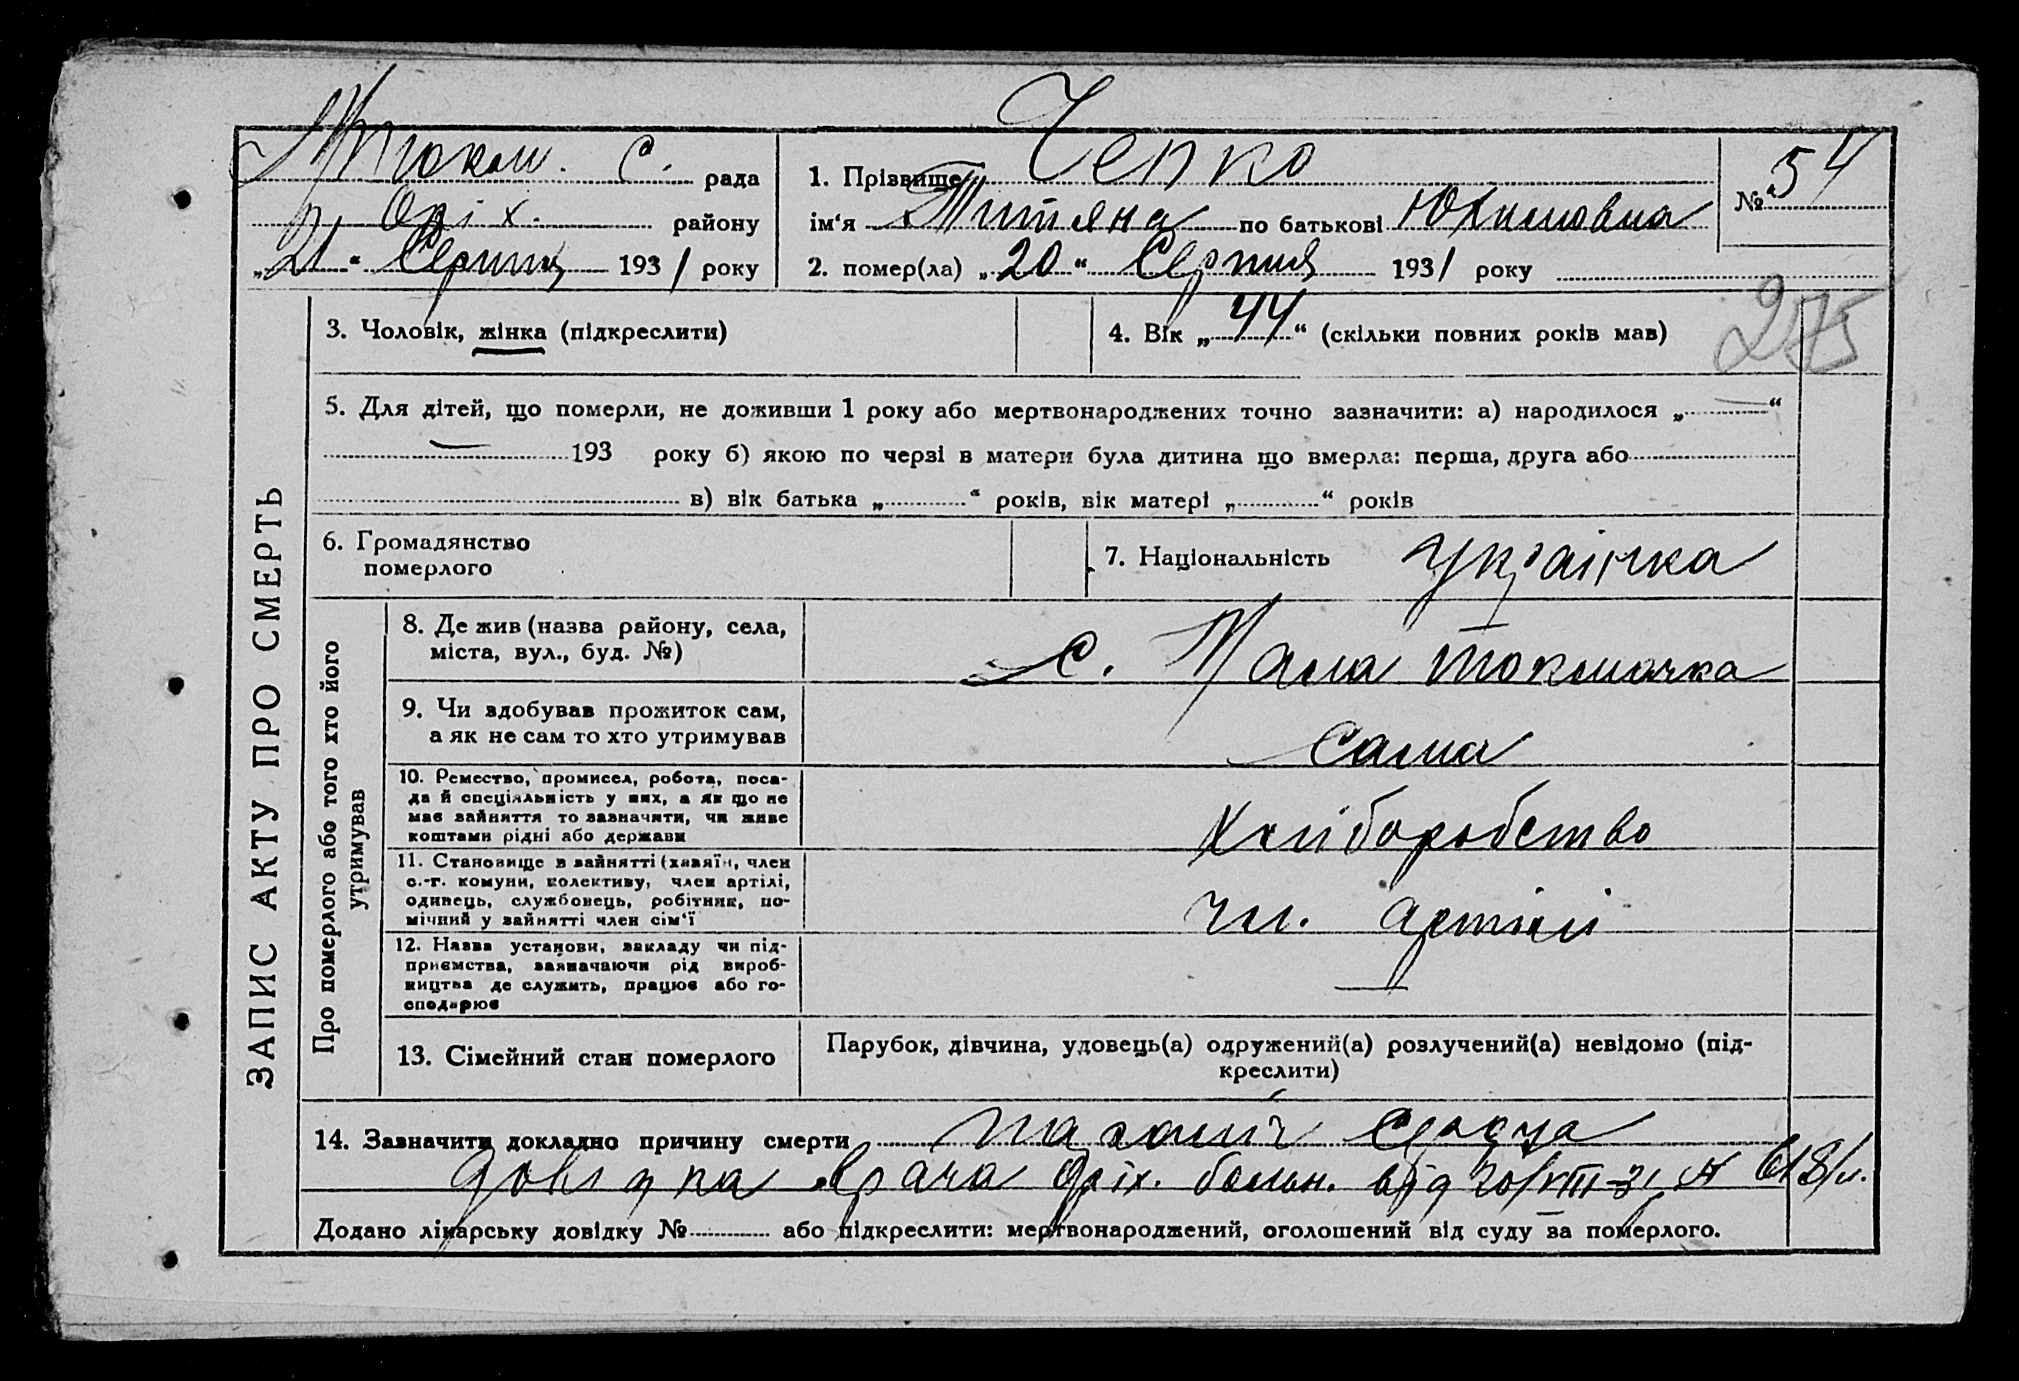 М Токм. С. рада
Оріх. району
„21“ Серпня 1931 року
1. Прізвище Чепко
ім‘я Титяна по батькові Юхимовна
2. помер(ла) „20“ Серпня 1931 року
№ 54
275
ЗАПИС АКТУ ПРО СМЕРТЬ
3. Чоловік, жінка (підкреслити)
4. Вік „44“ (скільки повних років мав)
5. Для дітей, що померли, не доживши 1 року або мертвонароджених точно зазначити: а) народилося „—“
— 193 року б) якою по черзі в матери була дитина що вмерла: перша, друга або
в) вік батька „ “ років, вік матері „ “ років
6. Громадянство
померлого
7. Національність українка
Про померлого або того хто його
утримував
8. Де жив (назва району, села,
міста, вул., буд. №)
с. Мала токмачка
9. Чи здобував прожиток сам,
а як не сам то хто утримував
сама
10. Ремество, промисел, робота, поса-
да й спеціяльність у них, а як що не
має зайняття то зазначити, чи живе
коштами рідні або держави
Хліборобство
11. Становище в зайнятті (хазяїн, член
с.-г. комуни, колективу, член артілі,
одинець, службовець, робітник, по-
мічний у зайнятті член сім‘ї
чл. артілі
12. Назва установи, закладу чи під-
приємства, зазначаючи рід вироб-
ництва де служить, працює або го-
сподарює
—
13. Сімейний стан померлого
Парубок, дівчина, удовець(а) одружений(а) розлучений(а) невідомо (під-
креслити)
14. Зазначити докладно причину смерти параліч серця
довідка врача Оріх. больн. від 20/VIII-31 №
Додано лікарську довідку № або підкреслити: мертвонароджений, оголошений від суду за померлого.